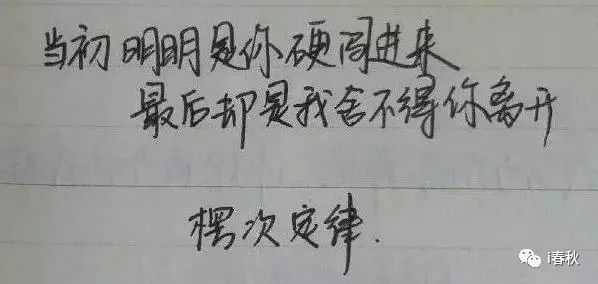 当初明明是你硬闯进来
最后却是我舍不得你离开
楞次定律.
i春秋